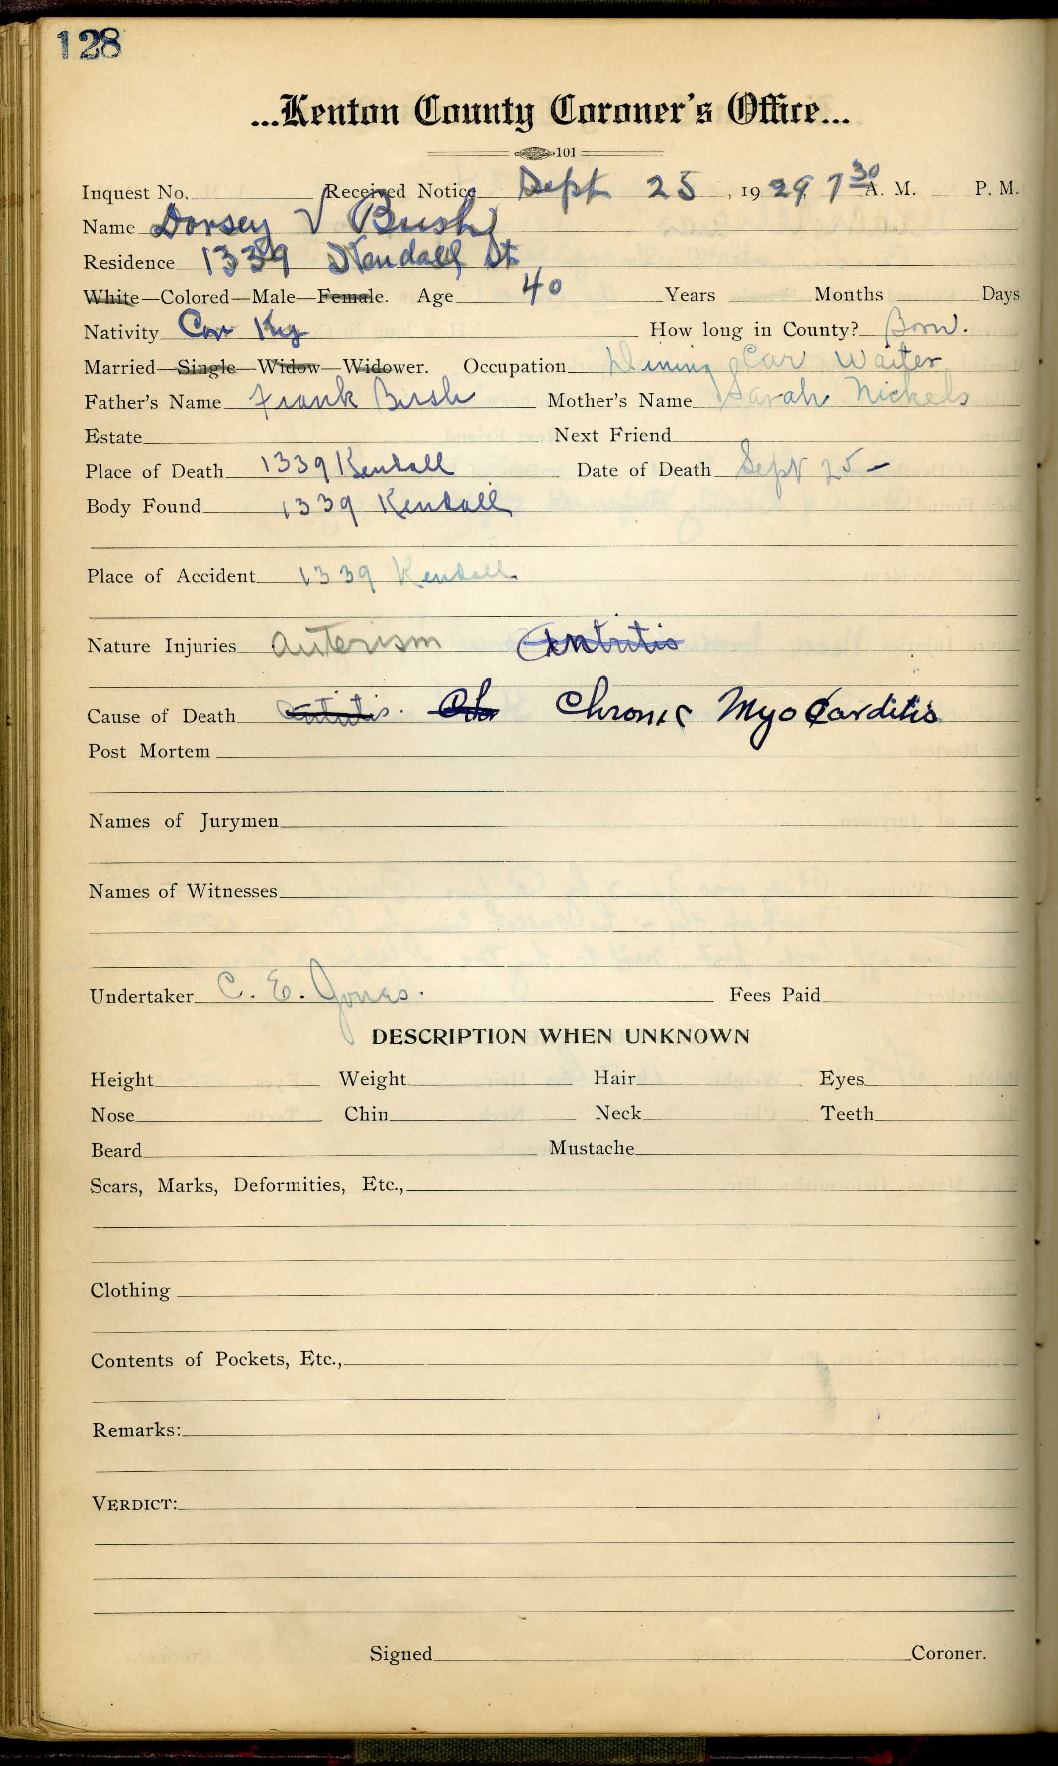 128
...Kenton County Coroner's Office...
101
Inquest No. Received Notice Sept 25, 1929 7 30 A. M. P. M.
Name Dorsey V Bush
Residence 1339 Kendall St
White—Colored—Male—Female. Age 40 Years Months Days
Nativity Cov Ky How long in County? Born.
Married—Single—Widow—Widower. Occupation Dining Car Waiter
Father's Name Frank Bush Mother's Name Sarah Nickels
Estate Next Friend
Place of Death 1339 Kendall Date of Death Sept 25 —
Body Found 1339 Kendall
Place of Accident 1339 Kendall.
Nature Injuries
Cause of Death Chronic Myocarditis
Post Mortem
Names of Jurymen
Names of Witnesses
Undertaker C. E. Jones. Fees Paid
DESCRIPTION WHEN UNKNOWN
Height Weight Hair Eyes
Nose Chin Neck Teeth
Beard Mustache
Scars, Marks, Deformities, Etc.,
Clothing
Contents of Pockets, Etc.,
Remarks:
VERDICT:
Signed Coroner.